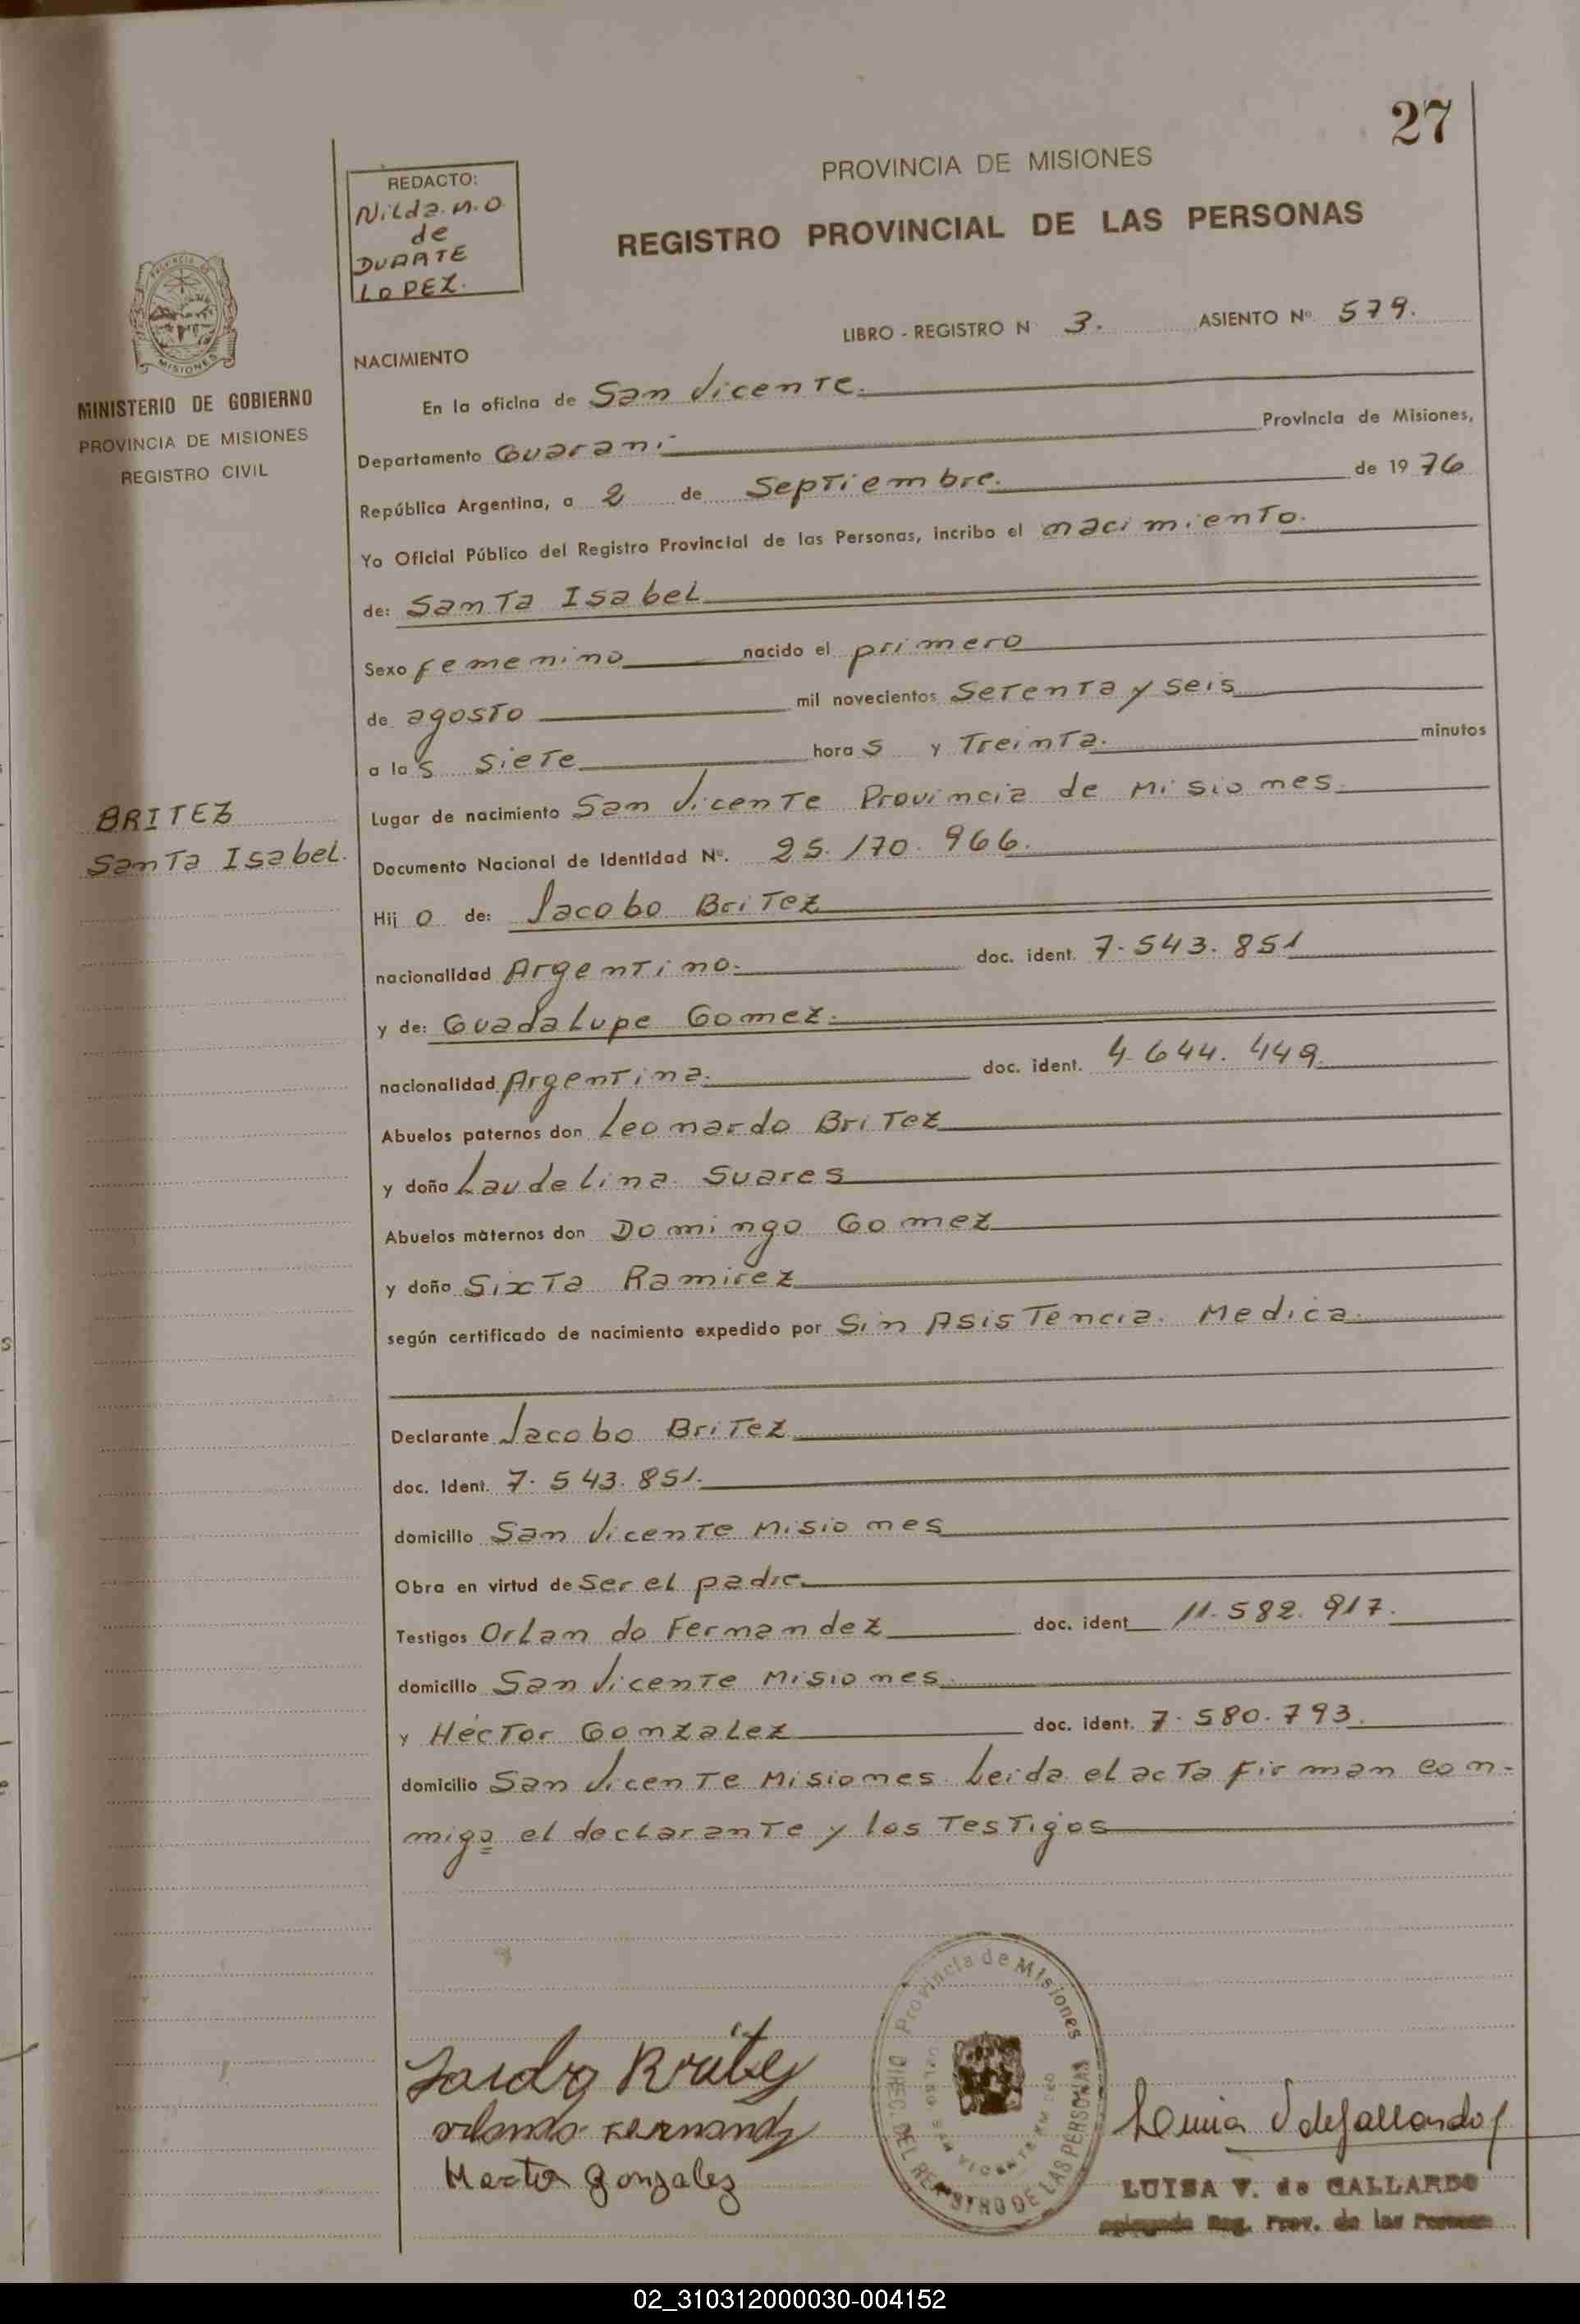 27
PROVINCIA DE MISIONES
REGISTRO PROVINCIAL DE LAS PERSONAS
REDACTO:
Nilda. N. O
de
DUARTE
LOPEZ.
LIBRO - REGISTRO Nº 3. ASIENTO Nº 579.
NACIMIENTO
MISIONES
MINISTERIO DE GOBIERNO
PROVINCIA DE MISIONES
REGISTRO CIVIL
En la oficina de San Vicente.
Departamento Guarani Provincia de Misiones,
República Argentina, a 2 de Septiembre. de 1976
Yo Oficial Público del Registro Provincial de las Personas, incribo el nacimiento.
de: Santa Isabel
Sexo femenino nacido el primero
de agosto mil novecientos setenta y seis
a las siete horas y treinta. minutos
Lugar de nacimiento San Vicente Provincia de Misiones.
BRITEZ
Santa Isabel.
Documento Nacional de Identidad Nº. 25.170.966.
Hijo de: Jacobo Britez
nacionalidad Argentino. doc. ident. 7.543.851
y de: Guadalupe Gomez.
nacionalidad Argentina. doc. ident. 4.644.449
Abuelos paternos don Leonardo Britez
y doña Laudelina Suares
Abuelos maternos don Domingo Gomez
y doña Sixta Ramirez
según certificado de nacimiento expedido por Sin Asistencia. Medica.
Declarante Jacobo Britez
doc. Ident. 7.543.851.
domicilio San Vicente Misiones
Obra en virtud de ser el padre
Testigos Orlando Fernandez doc. ident 11.582.917.
domicilio San Vicente Misiones
y Héctor Gonzalez doc. ident. 7.580.793.
domicilio San Vicente Misiones. Leida el acta firman con-
migo el declarante y los testigos
Provincia de Misiones
DIREC. DEL REGISTRO DE LAS PERSONAS
orlando Fernandz
Hector Gonzalez
LUISA V. de GALLARDO
Reg. Prov. de las Personas
02_310312000030-004152